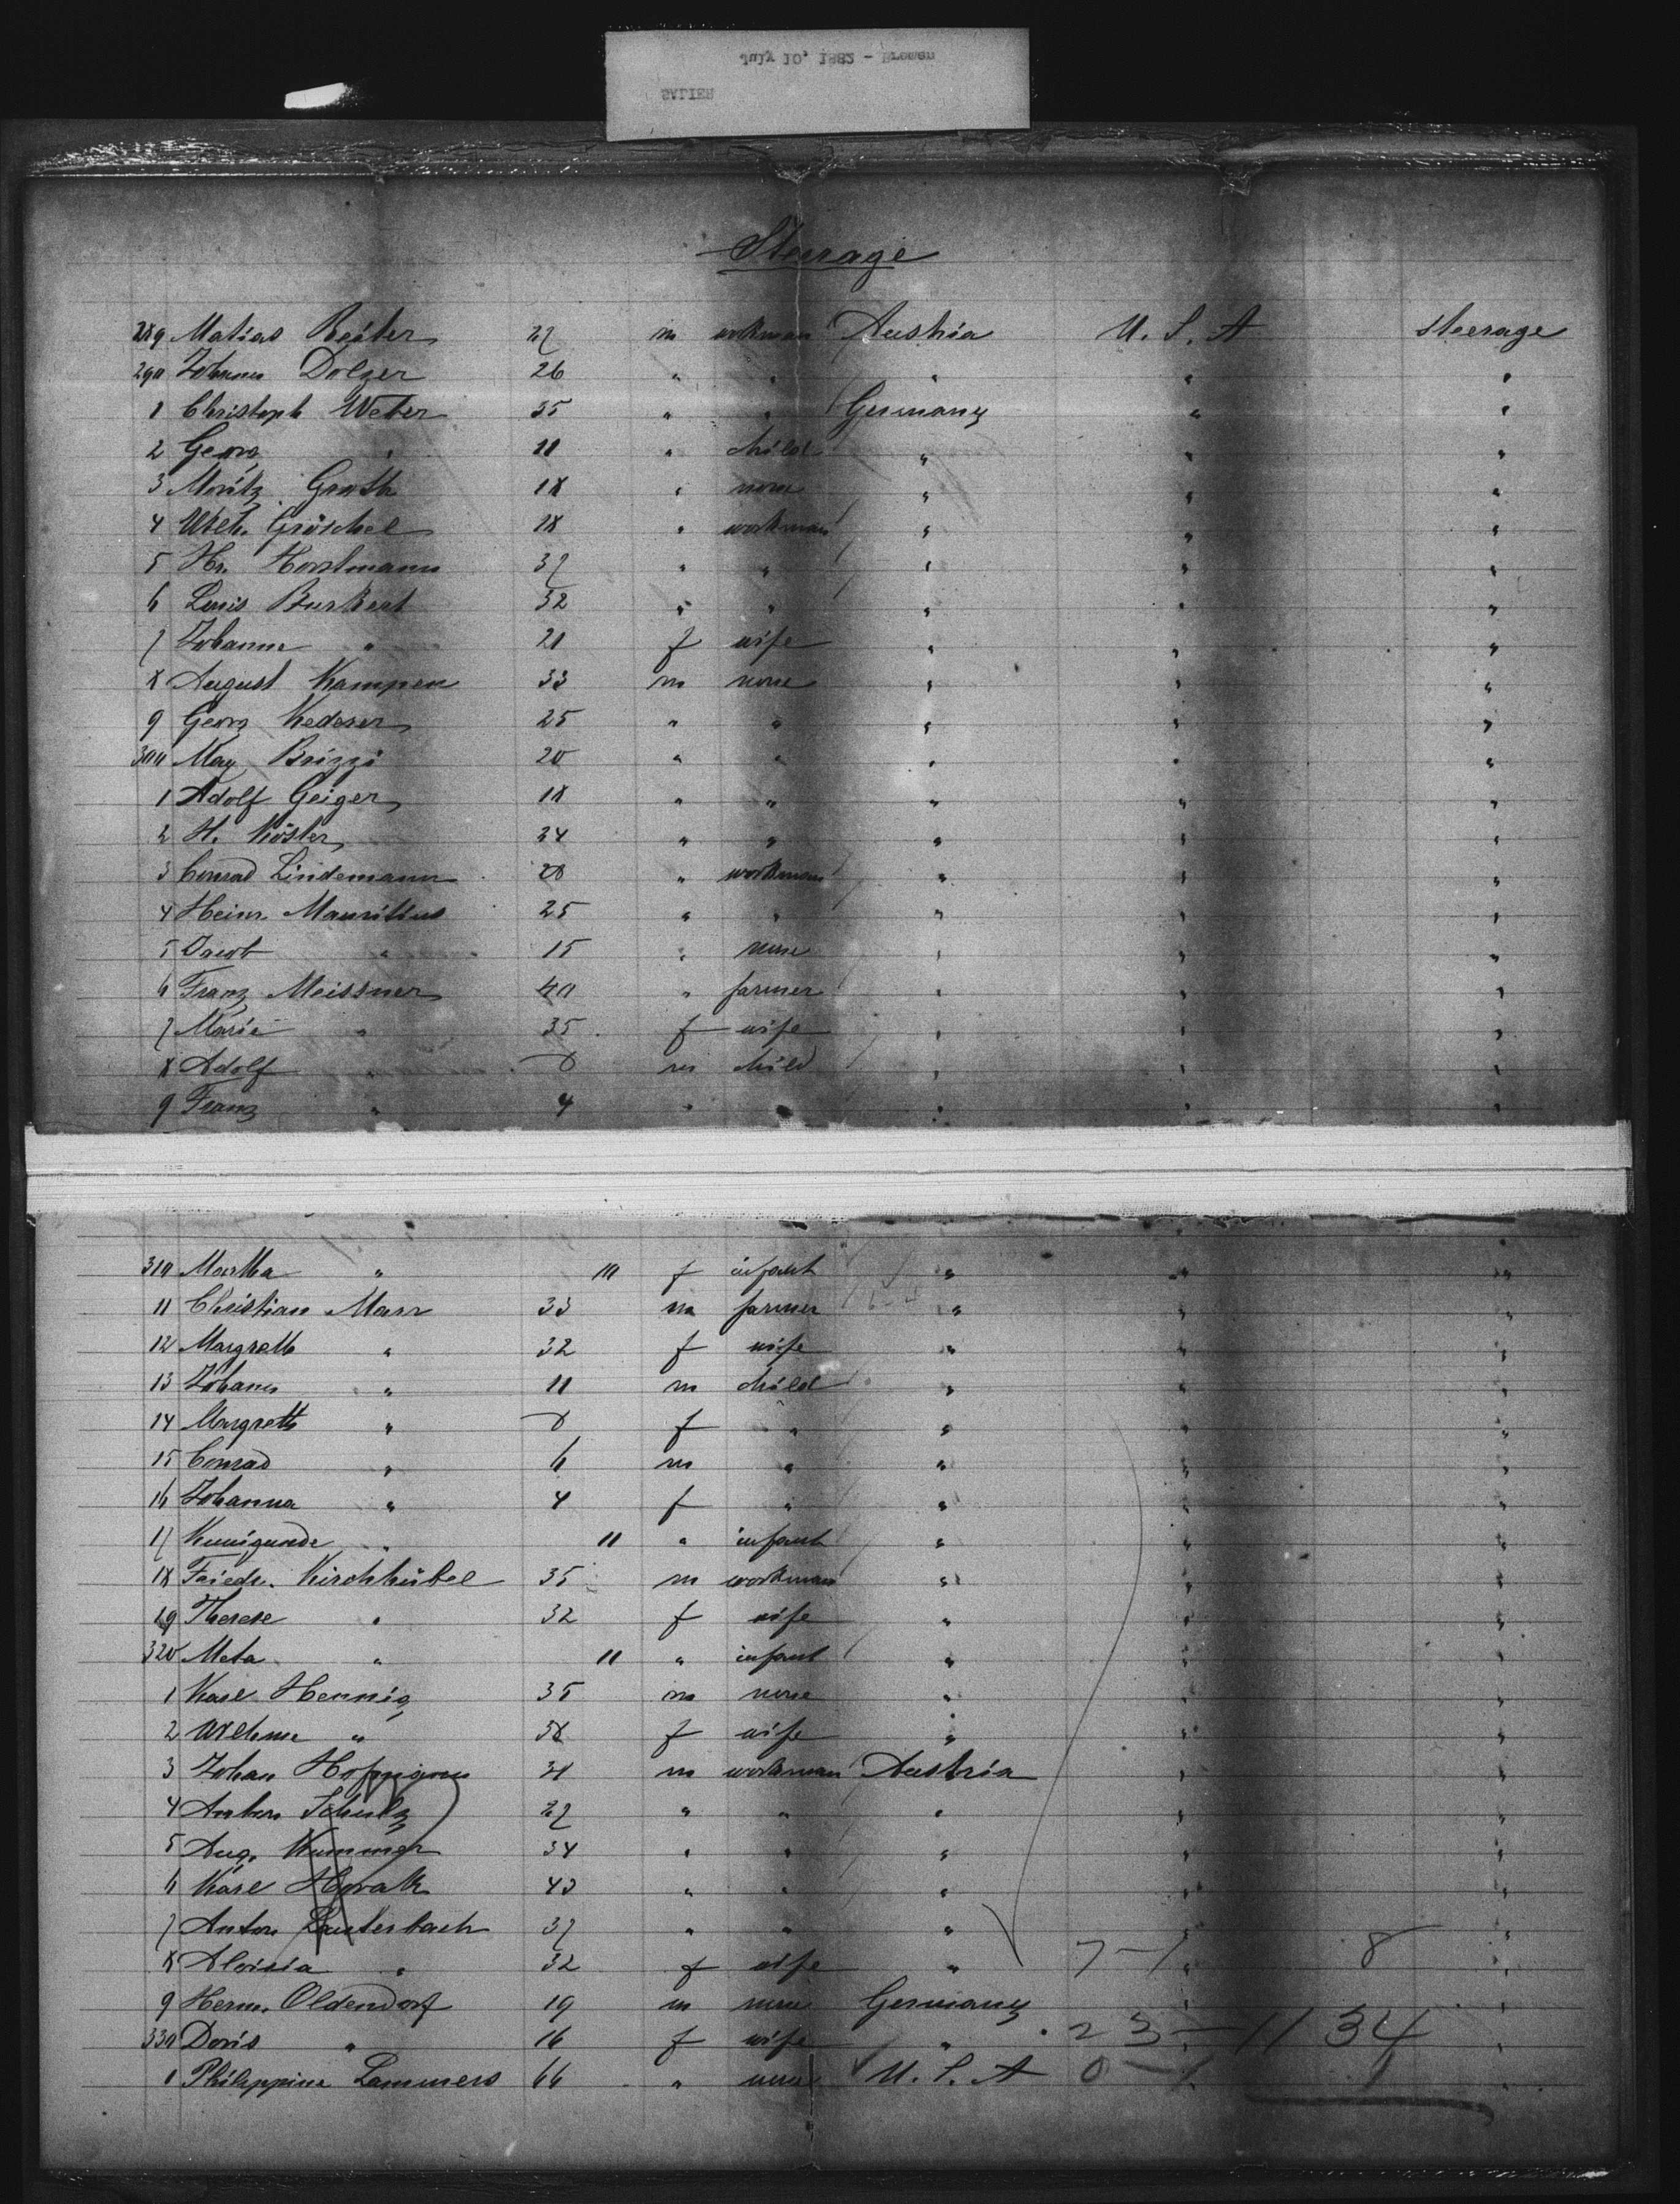 July 10, 1882 - Bremen
SALIER
Steerage
289 Matias Reiter 27 m workman Austria U. S. A steerage
290 Johann Dolzer 26 " " " " "
1 Christoph Weber 35 " " Germany " "
2 Georg " 11 " child " " "
3 Moritz Groth 18 " none " " "
4 Wilh. Gröschel 18 " workman " " "
5 Hr. Horstmann 37 " " " " "
6 Louis Burkert 32 " " " " "
7 Johanne " 21 f wife " " "
8 August Kampen 33 m none " " "
9 Georg Kederer 25 " " " " "
300 Max Brizzi 20 " " " " "
1 Adolf Geiger 18 " " " " "
2 H. Köster 34 " " " " "
3 Conrad Lindemann 28 " workman " " "
4 Heinr. Mauritius 25 " " " " "
5 Jacob " 15 " none " " "
6 Franz Meissner 40 " farmer " " "
7 Marie " 35 f wife " " "
8 Adolf " 8 m child " " "
9 Franz " 4 " " " " "
310 Martha " 10 f infant " " "
11 Christian Marr 33 m farmer " " "
12 Margreth " 32 f wife " " "
13 Johann " 11 m child " " "
14 Margreth " 8 f " " " "
15 Conrad " 6 m " " " "
16 Johanna " 4 f " " " "
17 Kunigunde " 11 " infant " " "
18 Friedr. Kirchhübel 35 m workman " " "
19 Therese " 32 f wife " " "
320 Meta " 11 " infant " " "
1 Karl Hennig 35 m none " " "
2 Wilhme " 38 f wife " " "
3 Johan Hofmann 31 m workman Austria " "
4 Anton Schulz 27 " " " " "
5 Aug. Kummer 34 " " " " "
6 Karl Horak 43 " " " " "
7 Anton Lauterbach 37 " " " " "
8 Aloisia " 32 f wife " 7 - 1 " 8 "
9 Herm. Oldendorf 19 m none Germany " "
330 Doris " 16 f wife " 23 - 11 34 "
1 Philippine Lammers 66 " none U. S. A 0 - 1 1 "